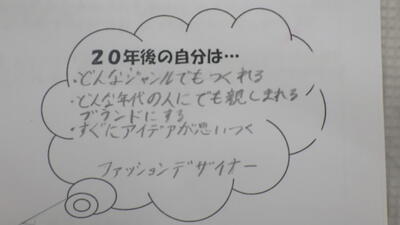 20年後の自分は…
・どんなジャンルでもつくれる
・どんな年代の人にでも親しまれる
ブランドにする
・すぐにアイデアが思いつく
ファッションデザイナー